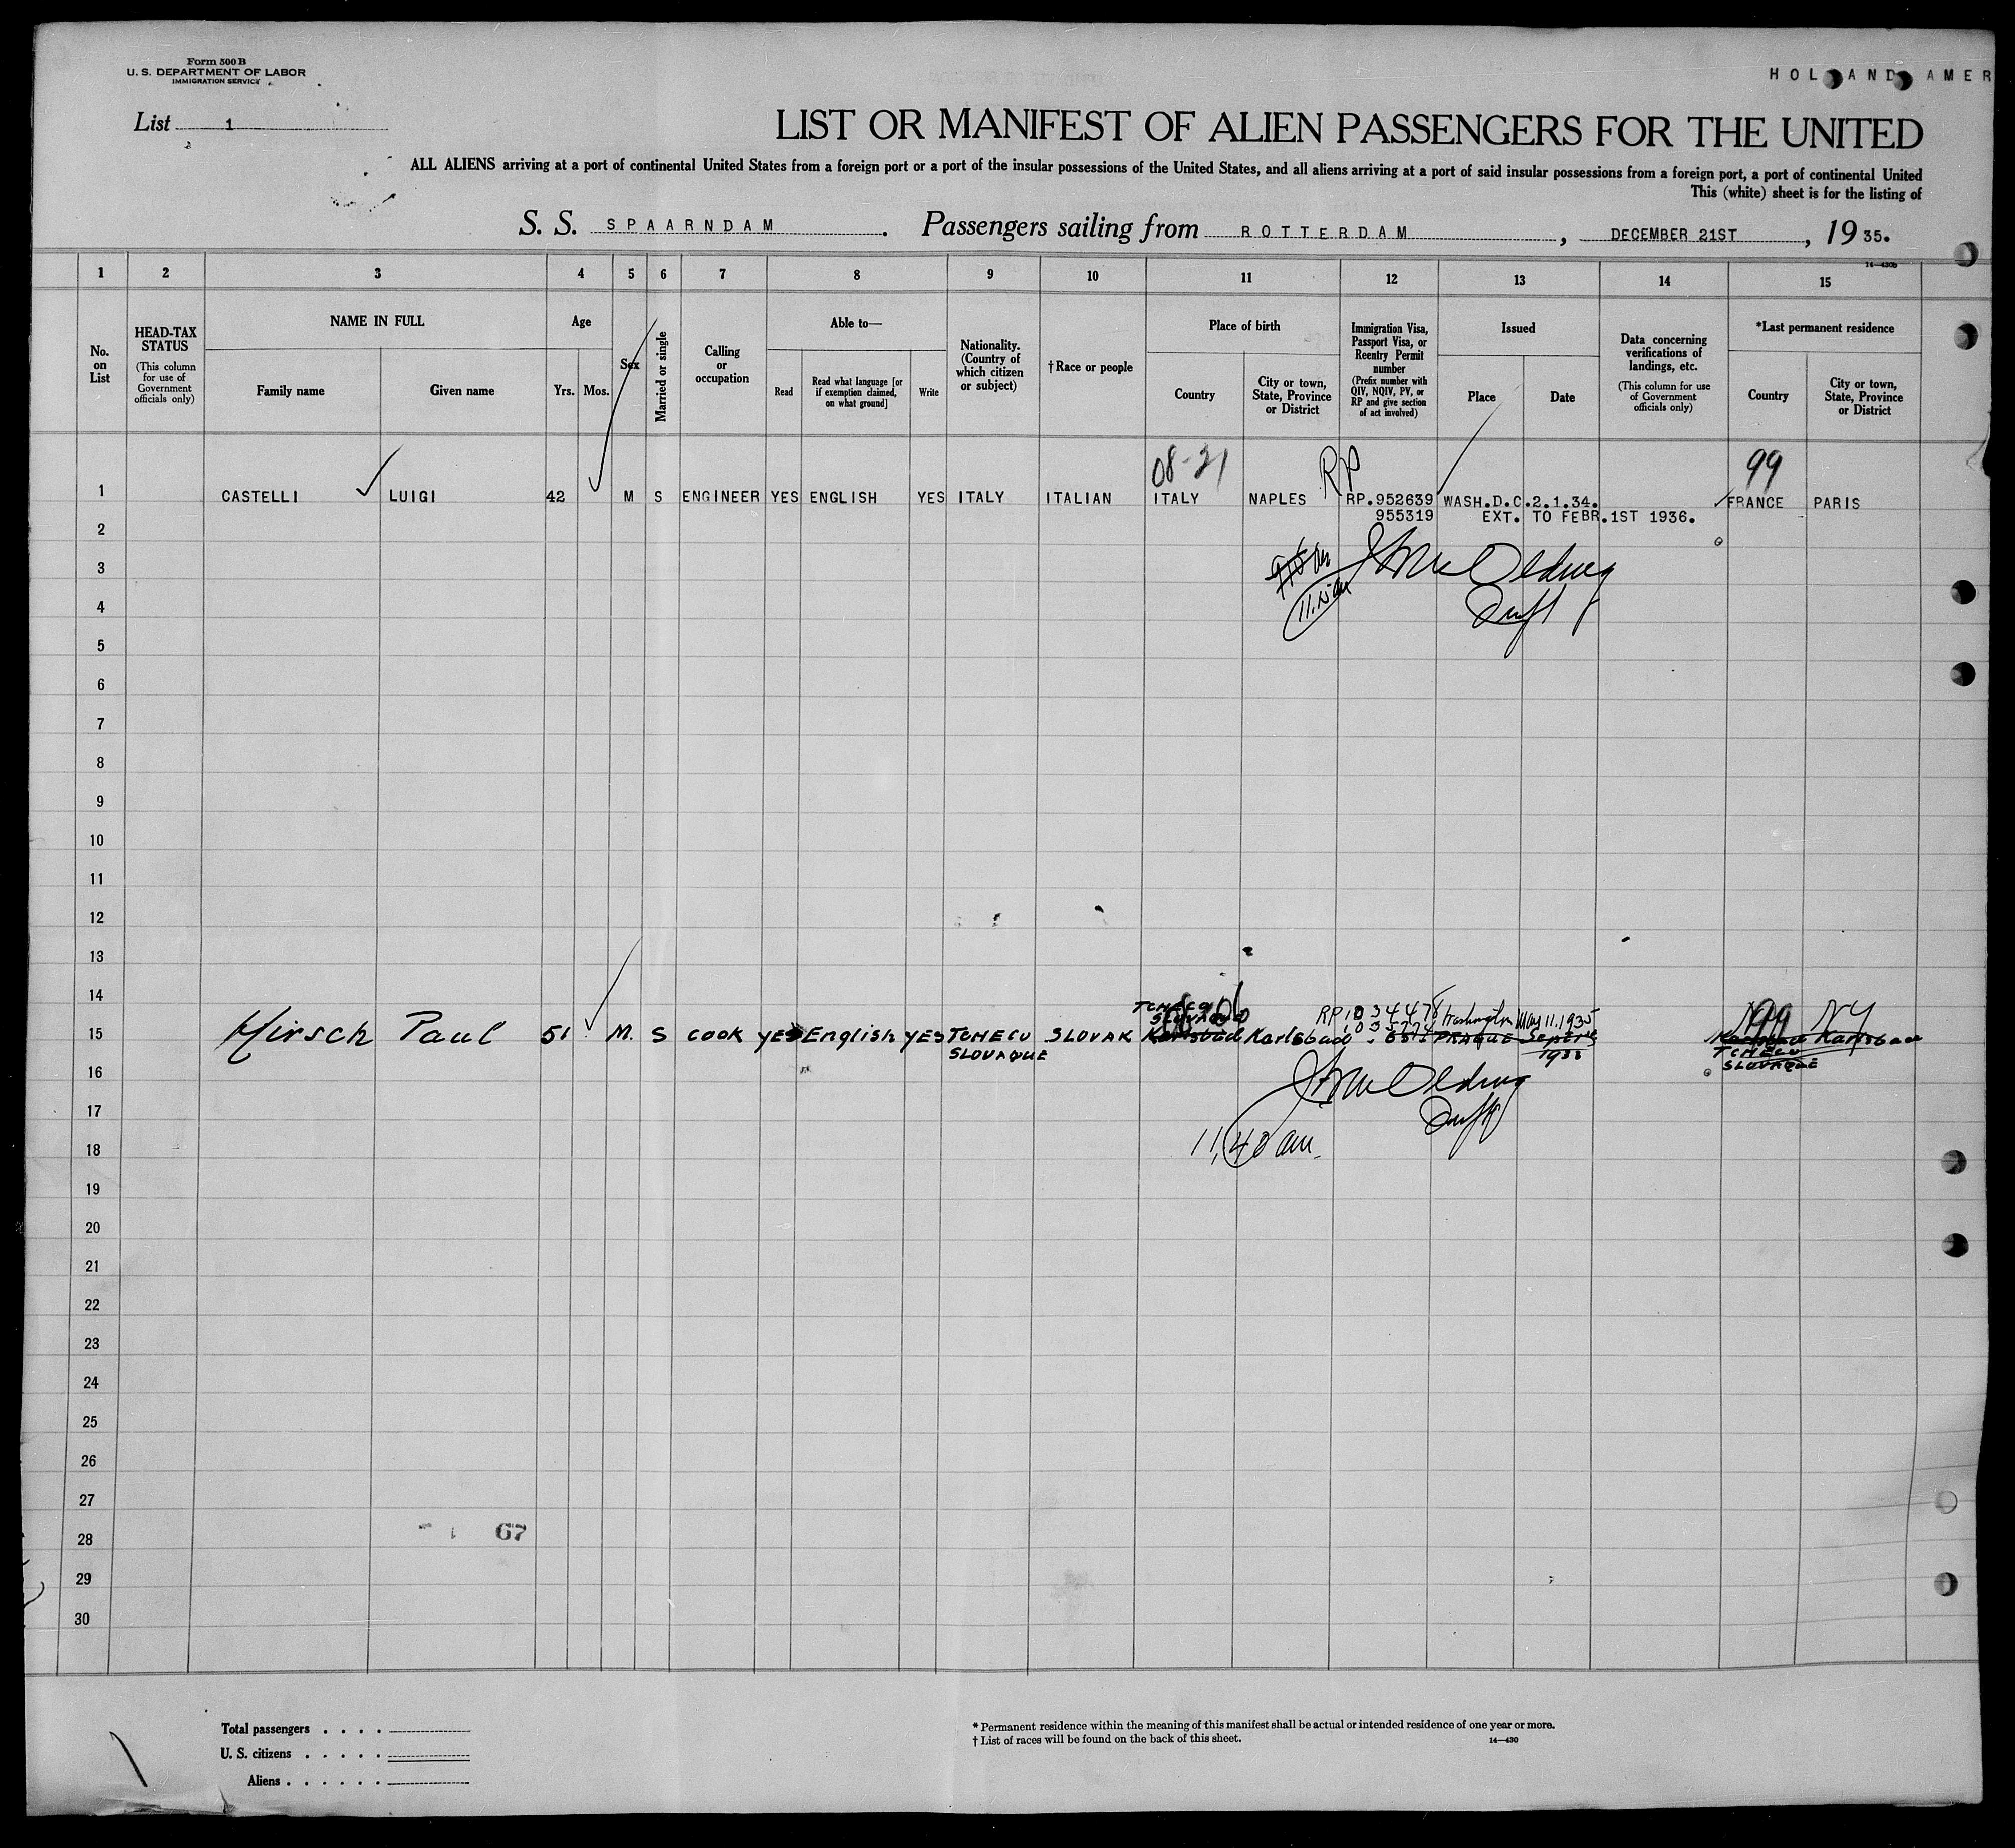 Form 500 B
U. S. DEPARTMENT OF LABOR
IMMIGRATION SERVICE
HOLLAND AMER
List 1
LIST OR MANIFEST OF ALIEN PASSENGERS FOR THE UNITED
ALL ALIENS arriving at a port of continental United States from a foreign port or a port of the insular possessions of the United States, and all aliens arriving at a port of said insular possessions from a foreign port, a port of continental United
This (white) sheet is for the listing of
S. S. SPAARNDAM. Passengers sailing from ROTTERDAM, DECEMBER 21ST, 19 35.
14—430b
1 2 3 4 5 6 7 8 9 10 11 12 13 14 15
No. on List
HEAD-TAX STATUS
(This column for use of Government officials only)
NAME IN FULL
Family name
Given name
Age
Yrs.
Mos.
Sex
Married or single
Calling or occupation
Able to—
Read
Read what language [or if exemption claimed, on what ground]
Write
Nationality. (Country of which citizen or subject)
† Race or people
Place of birth
Country
City or town, State, Province or District
Immigration Visa, Passport Visa, or Reentry Permit number
(Prefix number with QIV, NQIV, PV, or RP and give section of act involved)
Issued
Place
Date
Data concerning verifications of landings, etc.
(This column for use of Government officials only)
*Last permanent residence
Country
City or town, State, Province or District
08-21 RP 99
1 CASTELLI LUIGI 42 M S ENGINEER YES ENGLISH YES ITALY ITALIAN ITALY NAPLES RP.952639 WASH.D.C.2.1.34. FRANCE PARIS
955319 EXT. TO FEBR.1ST 1936.
2
3
4
5
6
7
8
9
10
11
12
13
14
TCHECO SLOVAQUE RP 1034478 Washington May 11.1935 99 NY
15 Hirsch Paul 51 M. S COOK YES English YES TCHECO SLOVAK Karlsbad Karlsbad PRAGUE Sept Karlsbad
SLOVAQUE 1935 TCHECO
SLOVAQUE
16
17
11,40 am
18
19
20
21
22
23
24
25
26
27
28
67
29
30
Total passengers . . . .
U. S. citizens . . . . .
Aliens . . . . . .
* Permanent residence within the meaning of this manifest shall be actual or intended residence of one year or more.
† List of races will be found on the back of this sheet.
14—430